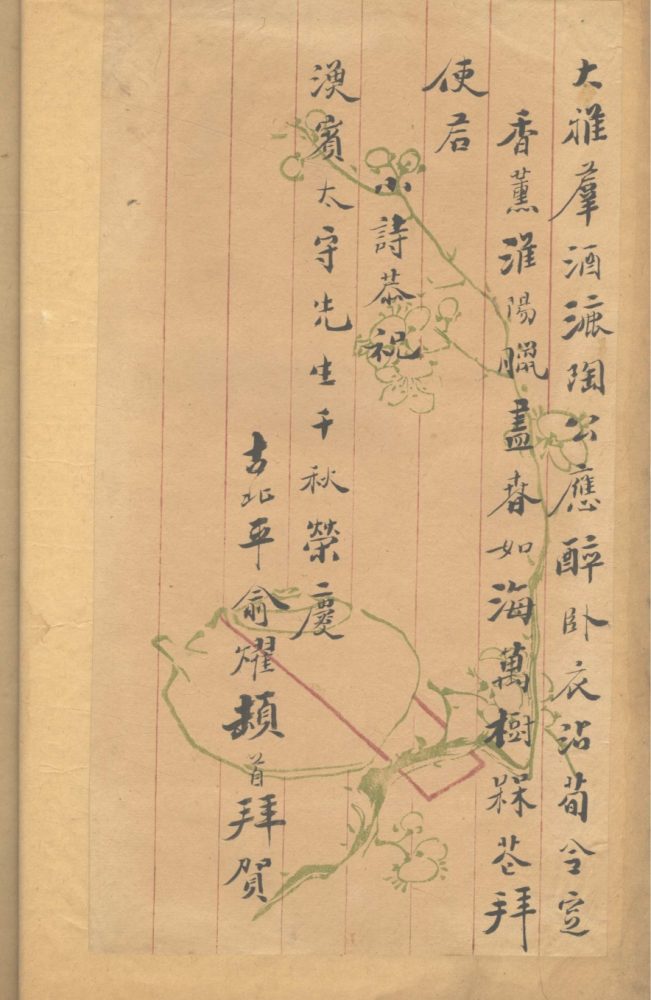 大雅羣酒漉陶公應醉卧衣沾荀令定
香薰淮陽臘盡春如海萬樹槑花拜
使君
小詩恭祝
渙賓太守先生千秋榮慶
古北平俞燿頓首拜賀